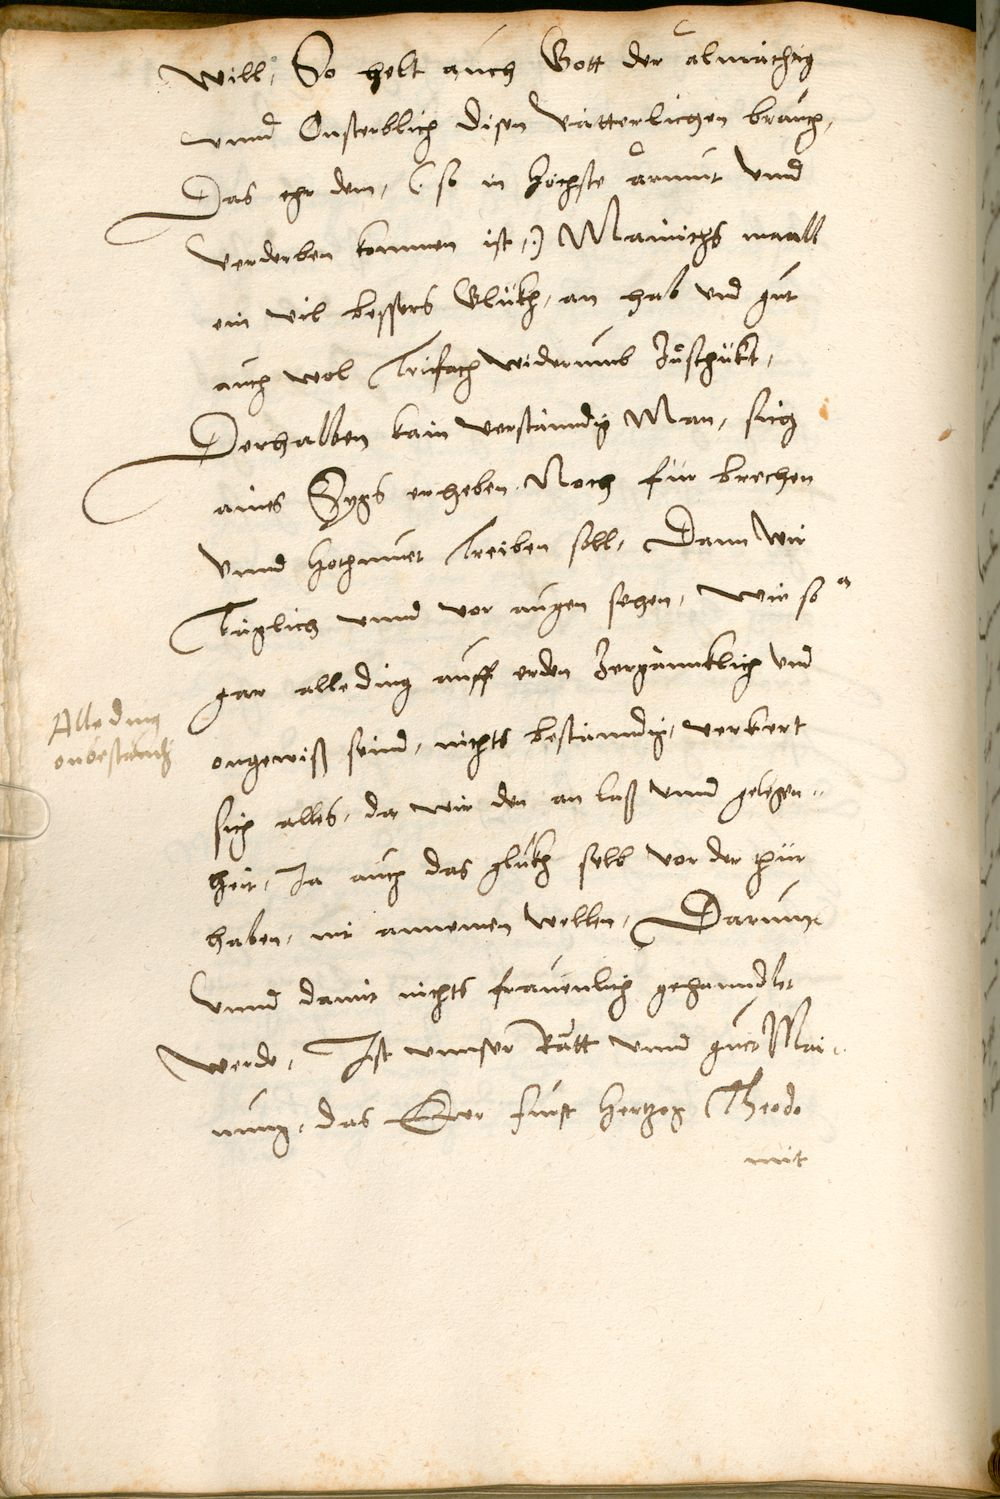 will, So helt auch Gott der almächtig
vnnd Onsterblich disen Vätterlichen brauch,
Das ehr dem, (: so in höchste armut vnnd
verderben kommen ist :) Mainichs maall
ein vil bessers Glükh, an hab vnd gut
auch wol Trifach widerumb zuschükt,
Derhalben kain verständig Man, sich
aines Sygs erheben Noch für brechen
vnnd hochmuet Treiben soll, Dann wir
Täglich vnnd vor augen sehen, wie so
gar alle ding auff erden zergännklich vnd
Alle ding
onbestendig
ongewiß seind, nichts beständig, verkert
sich alles, da wir den anlaß vnnd gelegen-
heit, Ja auch das glükh selb vor der thür
haben, nit annemen wellen, Darumb
vnnd damit nichts frauenlich gehanndlet
werde, Ist vnnser Rätt vnnd guet Mai-
nung, das Ewer fürst Hertzog Theodo
mit